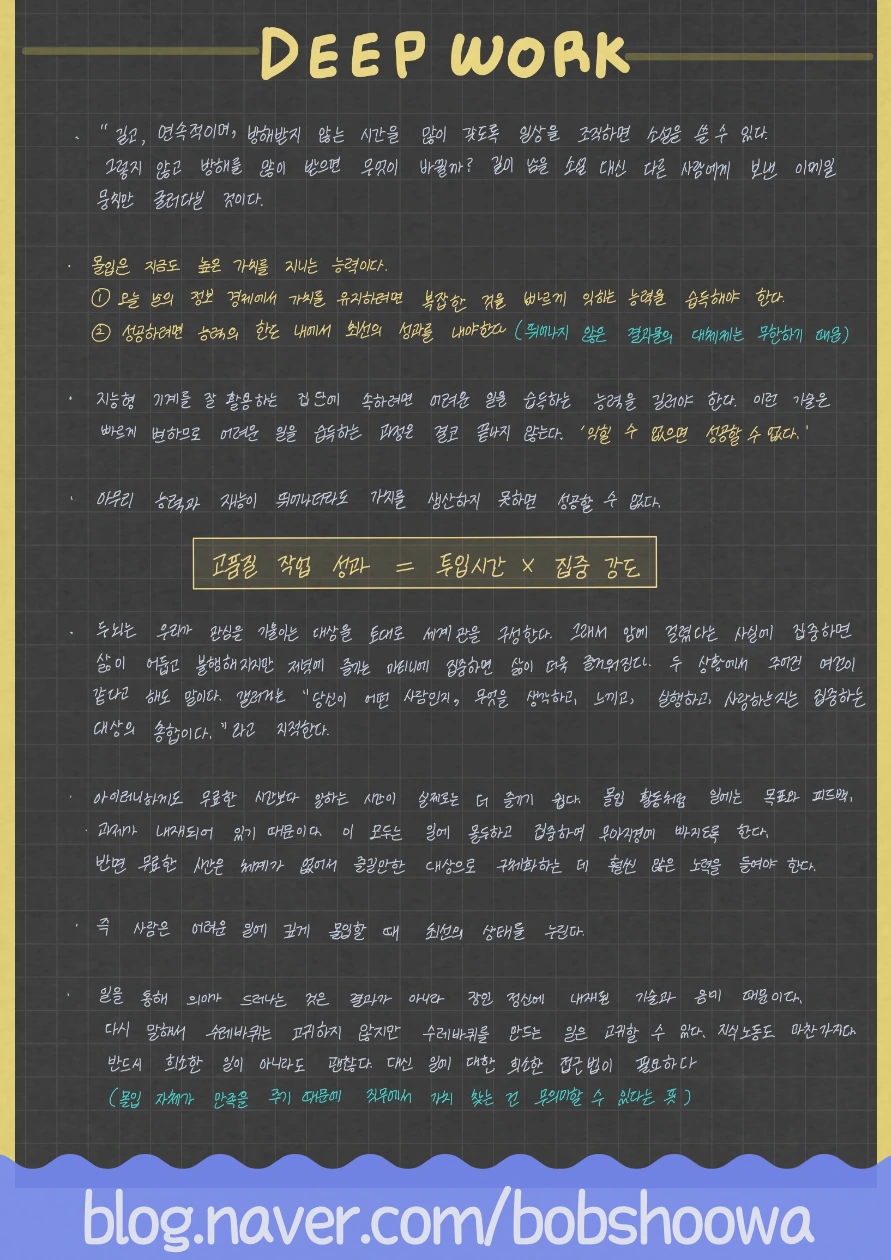 DEEP WORK
· "길고, 연속적이며, 방해받지 않는 시간을 많이 갖도록 일상을 조직하면 소설을 쓸 수 있다.
그렇지 않고 방해를 많이 받으면 무엇이 바뀔까? 길이 남을 소설 대신 다른 사람에게 보낸 이메일
뭉치만 굴러다닐 것이다.
· 몰입은 지금도 높은 가치를 지니는 능력이다.
① 오늘날의 정보 경제에서 가치를 유지하려면 복잡한 것을 빠르게 익히는 능력을 습득해야 한다.
② 성공하려면 능력의 한도 내에서 최선의 성과를 내야한다 (뛰어나지 않은 결과물의 대체제는 무한하기 때문)
· 지능형 기계를 잘 활용하는 집단에 속하려면 어려운 일을 습득하는 능력을 길러야 한다. 이런 기술은
빠르게 변하므로 어려운 일을 습득하는 과정은 결코 끝나지 않는다. '익힐 수 없으면 성공할 수 없다.'
· 아무리 능력과 재능이 뛰어나더라도 가치를 생산하지 못하면 성공할 수 없다.
고품질 작업 성과 = 투입시간 × 집중 강도
· 두뇌는 우리가 관심을 기울이는 대상을 토대로 세계관을 구성한다. 그래서 암에 걸렸다는 사실에 집중하면
삶이 어둡고 불행해지지만 저녁에 즐기는 마티니에 집중하면 삶이 더욱 즐거워진다. 두 상황에서 주어진 여건이
같다고 해도 말이다. 갤러거는 "당신이 어떤 사람인지, 무엇을 생각하고, 느끼고, 실행하고, 사랑하는지는 집중하는
대상의 총합이다."라고 지적한다.
· 아이러니하게도 무료한 시간보다 일하는 시간이 실제로는 더 즐기기 쉽다. 몰입 활동처럼 일에는 목표와 피드백,
· 과제가 내재되어 있기 때문이다. 이 모두는 일에 몰두하고 집중하여 무아지경에 빠지도록 한다.
반면 무료한 시간은 체계가 없어서 즐길만한 대상으로 구체화하는 데 훨씬 많은 노력을 들여야 한다.
· 즉 사람은 어려운 일에 깊게 몰입할 때 최선의 상태를 누린다.
· 일을 통해 의미가 드러나는 것은 결과가 아니라 장인 정신에 내재된 기술과 음미 때문이다.
다시 말해서 수레바퀴는 고귀하지 않지만 수레바퀴를 만드는 일은 고귀할 수 있다. 지식노동도 마찬가지다.
반드시 희소한 일이 아니라도 괜찮다. 대신 일에 대한 희소한 접근법이 필요하다
(몰입 자체가 만족을 주기 때문에 직무에서 가치 찾는 건 무의미할 수 있다는 뜻)
blog.naver.com/bobshoowa